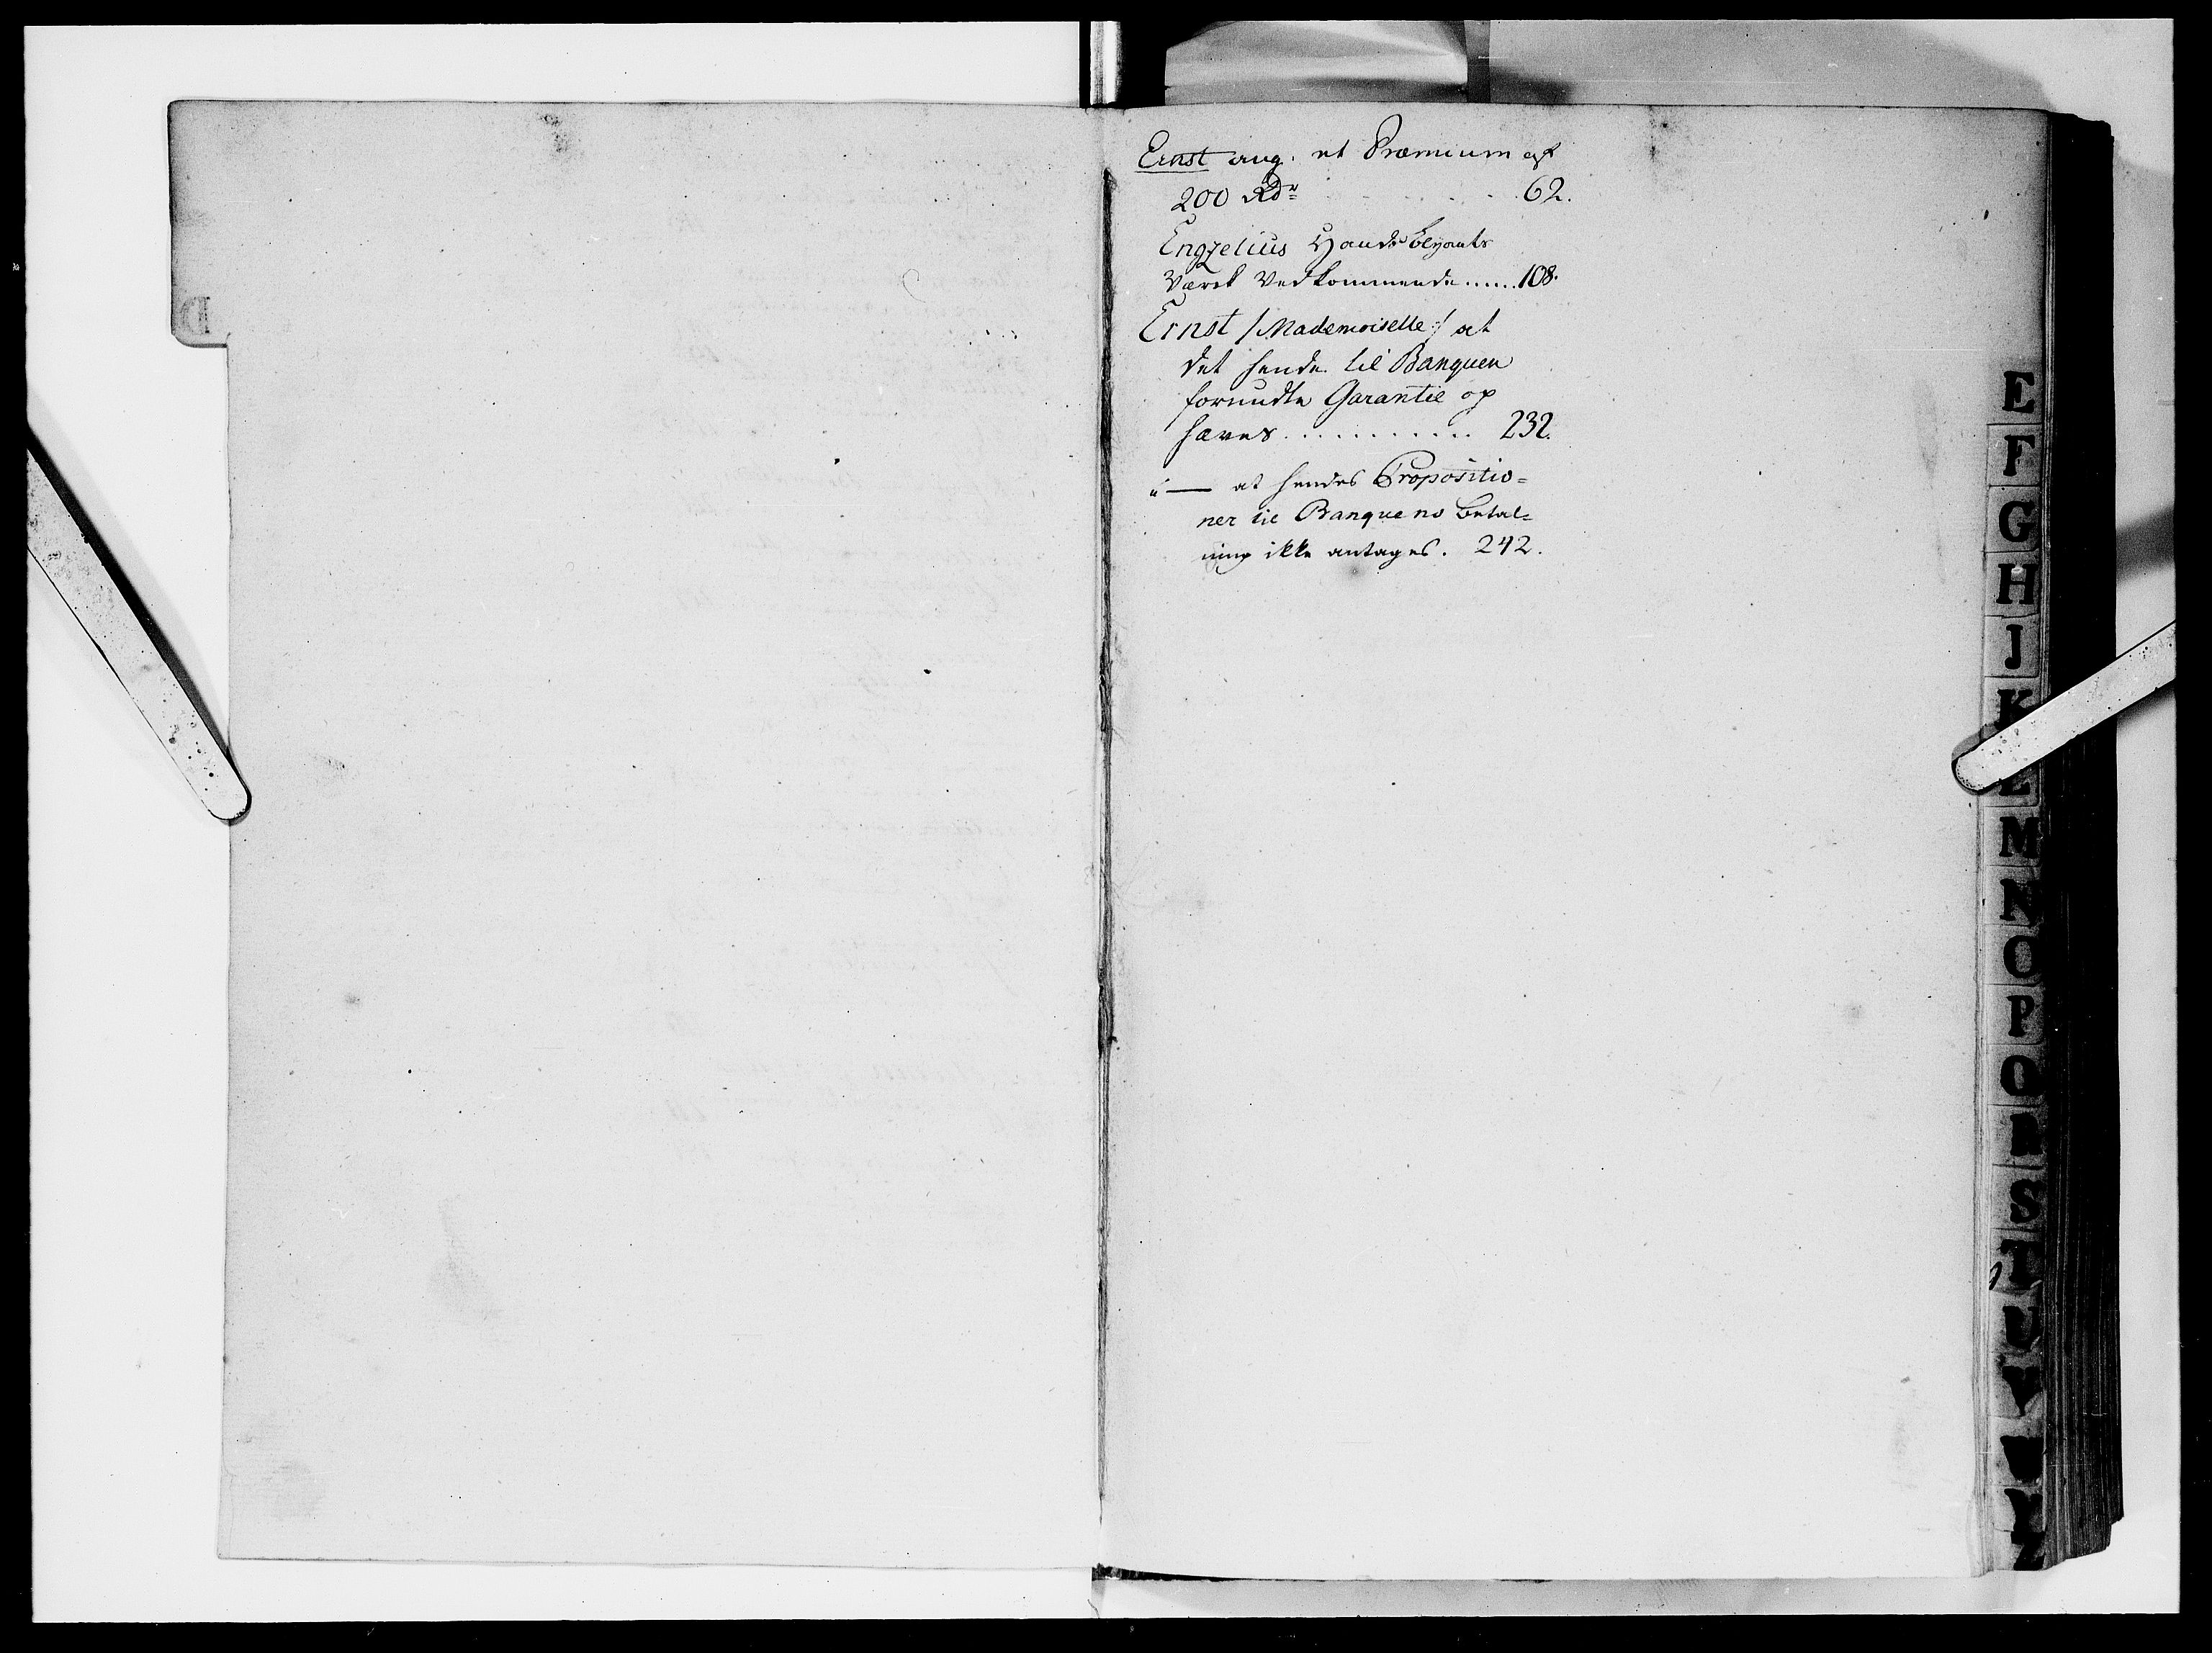 Ernst ang. et Præmium af
200 Rdr . . . . . . 62.
Engzelius Hans
Værk Vedkommende ...... 108.
Ernst /: Mademoiselle :/ at
det hende til Banquen
forundte Garantie op
hæves. . . . . . . . . . 232.
" — at hendes Propositio=
ner til Banquens Betal=
ning ikke antages. 242.
D
E
F
G
H
J
K
L
M
N
O
P
Q
R
S
T
U
V
Z